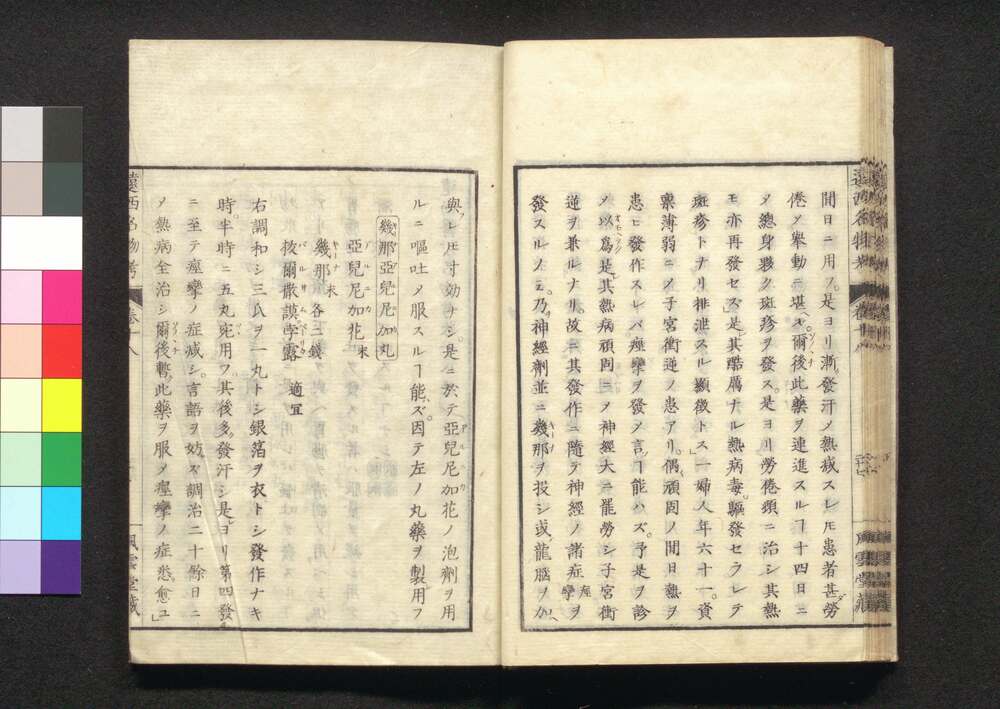 間日ニ用フ。是ヨリ漸ク發汗ノ熱減スレ𪜈患者甚タ勞
倦ノ擧動ニ堪ヘズ。爾後此藥ヲ連進スルヿ十四日ニ
ノ總身夥ク斑疹ヲ發ス。是ヨリ勞倦頓ニ治シ其熱
モ亦再發セズ」是レ其酷厲ナル熱病毒。驅發セラレテ
斑疹トナリ排泄スル顯徴トス」一婦人年六十一。資
禀薄弱ニノ子宮衝逆ノ患アリ。偶頑固ノ間日熱ヲ
患ヒ發作スレバ痙攣ヲ發ノ言フヿ能ハズ。予是ヲ診
ノ以爲ク是レ其熱病頑固ニノ神經大ニ罷勞シ子宮衝
逆ヲ兼ルナリ。故ニ其發作ニ隨テ神經ノ諸症痙攣ヲ
發スルノミ。乃チ神經劑並ニ幾那ヲ投シ或ハ龍腦ヲ加ヘ
與フレ𪜈寸効ナシ。是ニ於テ亞兒尼加花ノ泡劑ヲ用
ルニ嘔吐ノ服スルヿ能ハズ。因テ左ノ丸藥ヲ製用フ
幾那亞兒尼加丸
亞兒尼加花末
幾那末 各二錢
拔爾撒謨孛露 適宜
右調和シ三氏ヲ一丸トシ銀箔ヲ衣トシ發作ナキ
時半時ニ五丸宛用フ。其後多ク發汗シ是レヨリ第四發
ニ至テ痙攣ノ症減シ。言語ヲ妨ズ調治二十餘日ニ
ノ熱病全治シ爾後暫ク此藥ヲ服ノ痙攣ノ症悉ク愈ユ」
遠西名物考 卷十八
風雲堂藏